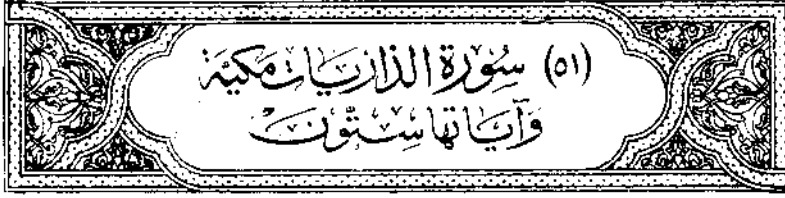 (٥١) سُوْرَة الذارِيَات مَكيَّة
وَآيَاتهَا سِتُّونَ